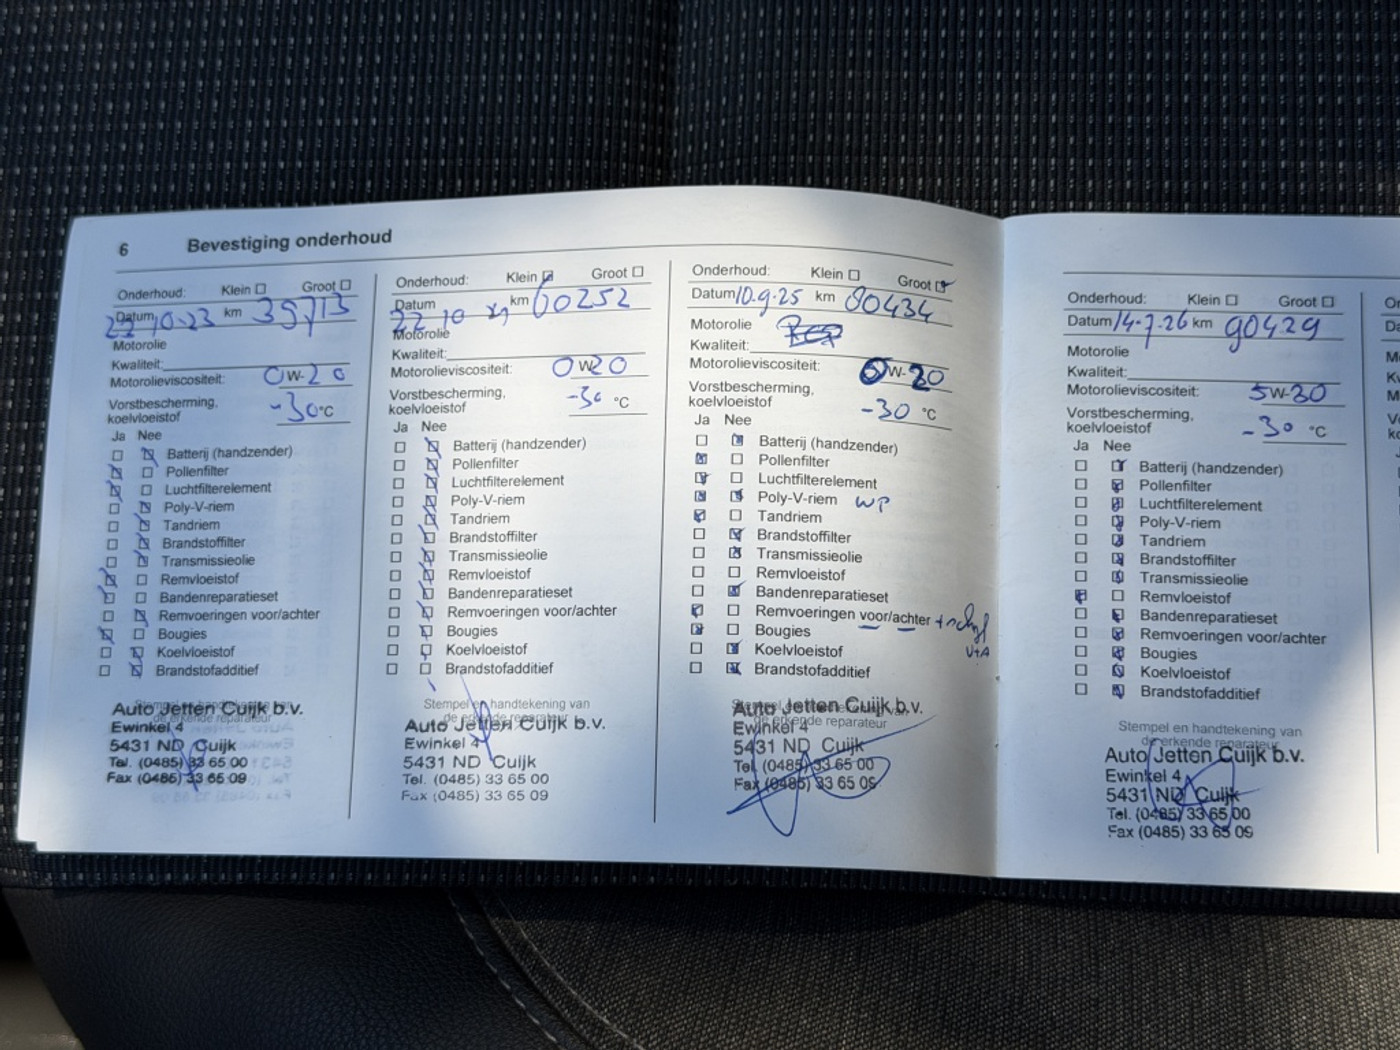 6 Bevestiging onderhoud
Onderhoud: Klein Groot
Datum 22 10-23 km 39713
Motorolie
Kwaliteit:
Motorolieviscositeit: 0W-20
Vorstbescherming,
koelvloeistof -30°C
Ja Nee
Batterij (handzender)
Pollenfilter
Luchtfilterelement
Poly-V-riem
Tandriem
Brandstoffilter
Transmissieolie
Remvloeistof
Bandenreparatieset
Remvoeringen voor/achter
Bougies
Koelvloeistof
Brandstofadditief
Stempel en handtekening van
de erkende reparateur
Auto Jetten Cuijk b.v.
Ewinkel 4
5431 ND Cuijk
Tel. (0485) 33 65 00
Fax (0485) 33 65 09
Onderhoud: Klein Groot
Datum 22 10 km 60252
Motorolie
Kwaliteit:
Motorolieviscositeit: 0W20
Vorstbescherming,
koelvloeistof -30 °C
Ja Nee
Batterij (handzender)
Pollenfilter
Luchtfilterelement
Poly-V-riem
Tandriem
Brandstoffilter
Transmissieolie
Remvloeistof
Bandenreparatieset
Remvoeringen voor/achter
Bougies
Koelvloeistof
Brandstofadditief
Stempel en handtekening van
de erkende reparateur
Auto Jetten Cuijk b.v.
Ewinkel 4
5431 ND Cuijk
Tel. (0485) 33 65 00
Fax (0485) 33 65 09
Onderhoud: Klein Groot
Datum 10.9.25 km 80434
Motorolie
Kwaliteit:
Motorolieviscositeit: 0W-20
Vorstbescherming,
koelvloeistof -30 °C
Ja Nee
Batterij (handzender)
Pollenfilter
Luchtfilterelement
Poly-V-riem WP
Tandriem
Brandstoffilter
Transmissieolie
Remvloeistof
Bandenreparatieset
Remvoeringen voor/achter
Bougies V+A
Koelvloeistof
Brandstofadditief
Stempel en handtekening van
de erkende reparateur
Auto Jetten Cuijk b.v.
Ewinkel 4
5431 ND Cuijk
Tel. (0485) 33 65 00
Fax (0485) 33 65 09
Onderhoud: Klein Groot
Datum 14.7.26 km 90429
Motorolie
Kwaliteit:
Motorolieviscositeit: 5W-30
Vorstbescherming,
koelvloeistof -30 °C
Ja Nee
Batterij (handzender)
Pollenfilter
Luchtfilterelement
Poly-V-riem
Tandriem
Brandstoffilter
Transmissieolie
Remvloeistof
Bandenreparatieset
Remvoeringen voor/achter
Bougies
Koelvloeistof
Brandstofadditief
Stempel en handtekening van
de erkende reparateur
Auto Jetten Cuijk b.v.
Ewinkel 4
5431 ND Cuijk
Tel. (0485) 33 65 00
Fax (0485) 33 65 09